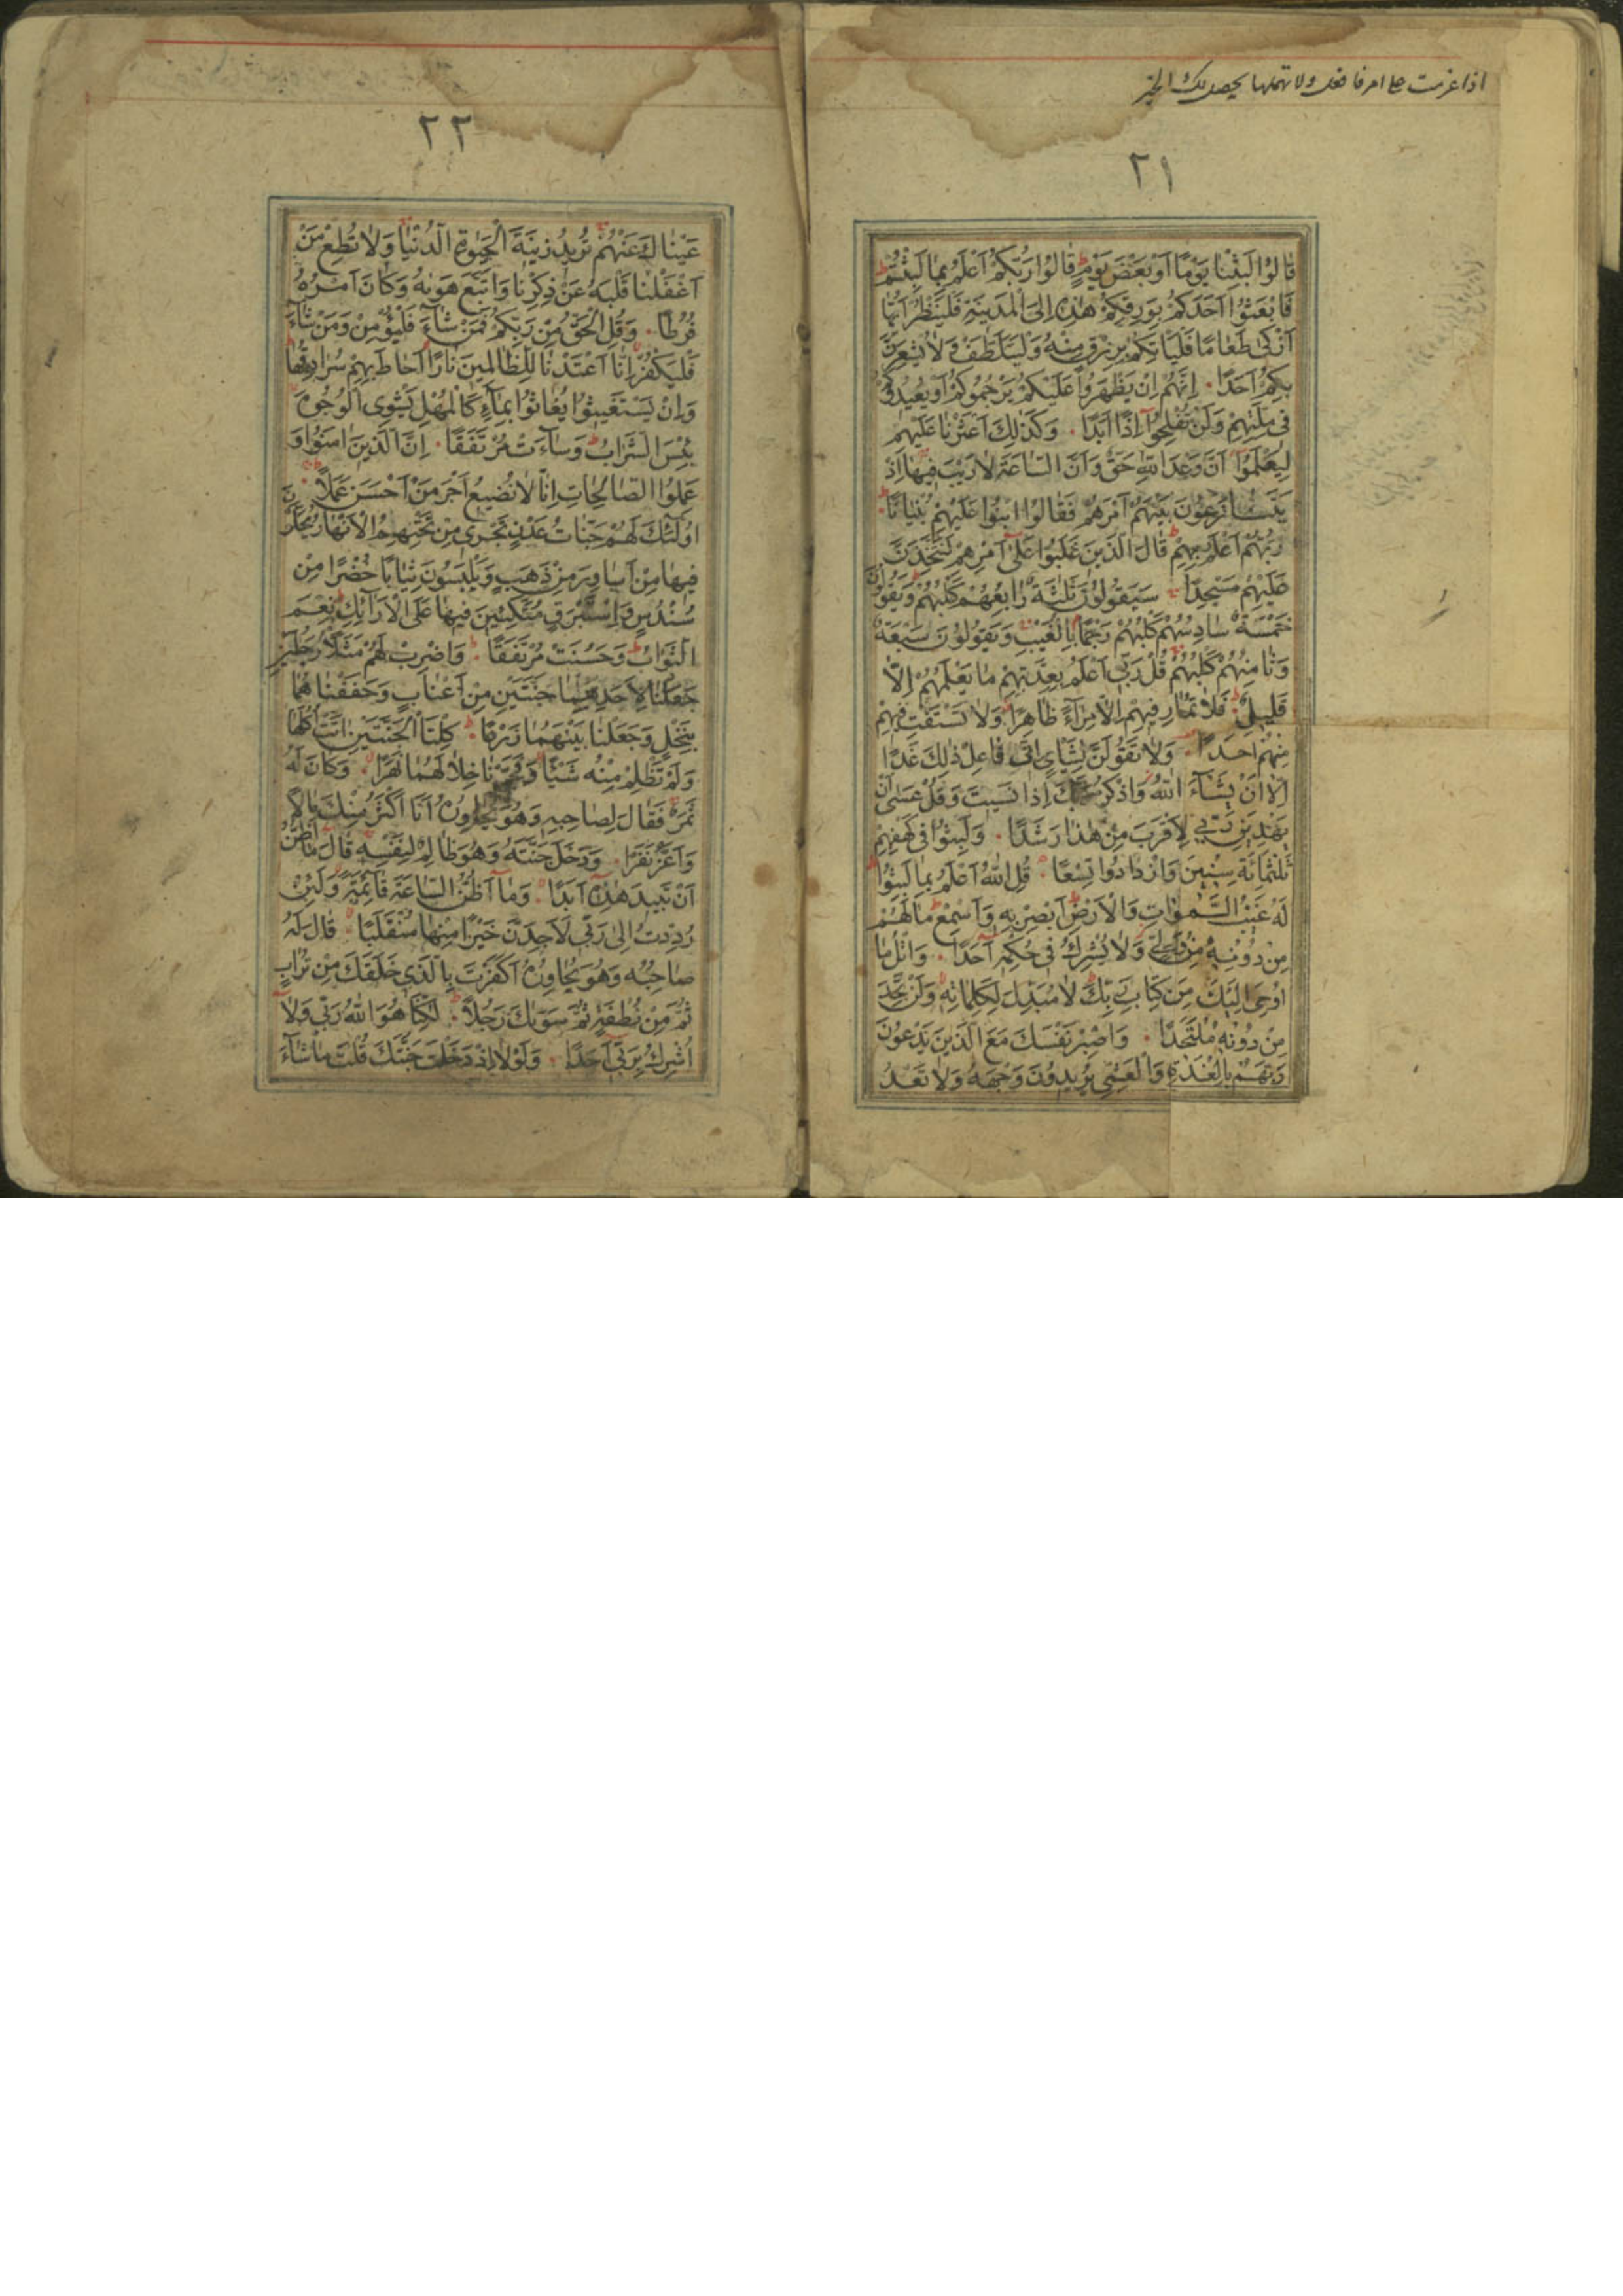 اذا عزمت على امر فافعل ولا تمهلها يحصل لك الخير
٢١
قٰالُوا لَبِثْنٰا يَوْمًا اَوْ بَعْضَ يَوْمٍ قٰالُوا رَبُّكُمْ اَعْلَمُ بِمٰا لَبِثْتُمْ
فَابْعَثُوا اَحَدَكُمْ بِوَرِقِكُمْ هٰذِهِ اِلَى الْمَدينَةِ فَلْيَنْظُرْ اَيُّهٰا
اَزْكٰى طَعٰامًا فَلْيَأْتِكُمْ بِرِزْقٍ مِنْهُ وَلْيَتَلَطَّفْ وَلٰا يُشْعِرَنَّ
بِكُمْ اَحَدًا ۰ اِنَّهُمْ اِنْ يَظْهَرُوا عَلَيْكُمْ يَرْجُمُوكُمْ اَوْ يُعيدُوكُمْ
فى مِلَّتِهِمْ وَلَنْ تُفْلِحُوا اِذًا اَبَدًا ۰ وَكَذٰلِكَ اَعْثَرْنٰا عَلَيْهِمْ
لِيَعْلَمُوا اَنَّ وَعْدَ اللّٰهِ حَقٌّ وَاَنَّ السّٰاعَةَ لٰا رَيْبَ فيهٰا اِذْ
يَتَنٰازَعُونَ بَيْنَهُمْ اَمْرَهُمْ فَقٰالُوا ابْنُوا عَلَيْهِمْ بُنْيٰانًا
رَبُّهُمْ اَعْلَمُ بِهِمْ قٰالَ الَّذينَ غَلَبُوا عَلٰى اَمْرِهِمْ لَنَتَّخِذَنَّ
عَلَيْهِمْ مَسْجِدًا ۰ سَيَقُولُونَ ثَلٰثَةٌ رٰابِعُهُمْ كَلْبُهُمْ وَيَقُولُونَ
خَمْسَةٌ سٰادِسُهُمْ كَلْبُهُمْ رَجْمًا بِالْغَيْبِ وَيَقُولُونَ سَبْعَةٌ
وَثٰامِنُهُمْ كَلْبُهُمْ قُلْ رَبّى اَعْلَمُ بِعِدَّتِهِمْ مٰا يَعْلَمُهُمْ اِلّٰا
قَليلٌ فَلٰا تُمٰارِ فيهِمْ اِلّٰا مِرٰاءً ظٰاهِرًا وَلٰا تَسْتَفْتِ فيهِمْ
مِنْهُمْ اَحَدًا ۰ وَلٰا تَقُولَنَّ لِشَاْىءٍ اِنّى فٰاعِلٌ ذٰلِكَ غَدًا
اِلّٰا اَنْ يَشٰاءَ اللّٰهُ وَاذْكُرْ رَبَّكَ اِذٰا نَسيتَ وَقُلْ عَسٰى اَنْ
يَهْدِيَنِ رَبّى لِاَقْرَبَ مِنْ هٰذٰا رَشَدًا ۰ وَلَبِثُوا فى كَهْفِهِمْ
ثَلٰثَمِائَةٍ سِنينَ وَازْدٰادُوا تِسْعًا ۰ قُلِ اللّٰهُ اَعْلَمُ بِمٰا لَبِثُوا
لَهُ غَيْبُ السَّمٰوٰاتِ وَالْاَرْضِ اَبْصِرْ بِهِ وَاَسْمِعْ مٰا لَهُمْ
مِنْ دُونِهِ مِنْ وَلِىٍّ وَلٰا يُشْرِكُ فى حُكْمِهِ اَحَدًا ۰ وَاتْلُ مٰا
اُوحِىَ اِلَيْكَ مِنْ كِتٰابِ رَبِّكَ لٰا مُبَدِّلَ لِكَلِمٰاتِهِ وَلَنْ تَجِدَ
مِنْ دُونِهِ مُلْتَحَدًا ۰ وَاصْبِرْ نَفْسَكَ مَعَ الَّذينَ يَدْعُونَ
رَبَّهُمْ بِالْغَدٰوةِ وَالْعَشِىِّ يُريدُونَ وَجْهَهُ وَلٰا تَعْدُ
٢٢
عَيْنٰاكَ عَنْهُمْ تُريدُ زينَةَ الْحَيٰوةِ الدُّنْيٰا وَلٰا تُطِعْ مَنْ
اَغْفَلْنٰا قَلْبَهُ عَنْ ذِكْرِنٰا وَاتَّبَعَ هَوٰيهُ وَكٰانَ اَمْرُهُ
فُرُطًا ۰ وَقُلِ الْحَقُّ مِنْ رَبِّكُمْ فَمَنْ شٰاءَ فَلْيُؤْمِنْ وَمَنْ شٰاءَ
فَلْيَكْفُرْ اِنّٰا اَعْتَدْنٰا لِلظّٰالِمينَ نٰارًا اَحٰاطَ بِهِمْ سُرٰادِقُهٰا
وَاِنْ يَسْتَغيثُوا يُغٰاثُوا بِمٰاءٍ كَالْمُهْلِ يَشْوِى الْوُجُوهَ
بِئْسَ الشَّرٰابُ وَسٰاءَتْ مُرْتَفَقًا ۰ اِنَّ الَّذينَ اٰمَنُوا وَ
عَمِلُوا الصّٰالِحٰاتِ اِنّٰا لٰا نُضيعُ اَجْرَ مَنْ اَحْسَنَ عَمَلًا ۰
اُولٰئِكَ لَهُمْ جَنّٰاتُ عَدْنٍ تَجْرى مِنْ تَحْتِهِمُ الْاَنْهٰارُ يُحَلَّوْنَ
فيهٰا مِنْ اَسٰاوِرَ مِنْ ذَهَبٍ وَيَلْبَسُونَ ثِيٰابًا خُضْرًا مِنْ
سُنْدُسٍ وَاِسْتَبْرَقٍ مُتَّكِئينَ فيهٰا عَلَى الْاَرٰائِكِ نِعْمَ
الثَّوٰابُ وَحَسُنَتْ مُرْتَفَقًا ۰ وَاضْرِبْ لَهُمْ مَثَلًا رَجُلَيْنِ
جَعَلْنٰا لِاَحَدِهِمٰا جَنَّتَيْنِ مِنْ اَعْنٰابٍ وَحَفَفْنٰاهُمٰا
بِنَخْلٍ وَجَعَلْنٰا بَيْنَهُمٰا زَرْعًا ۰ كِلْتَا الْجَنَّتَيْنِ اٰتَتْ اُكُلَهٰا
وَلَمْ تَظْلِمْ مِنْهُ شَيْئًا وَفَجَّرْنٰا خِلٰالَهُمٰا نَهَرًا ۰ وَكٰانَ لَهُ
ثَمَرٌ فَقٰالَ لِصٰاحِبِهِ وَهُوَ يُحٰاوِرُهُ اَنَا اَكْثَرُ مِنْكَ مٰالًا
وَاَعَزُّ نَفَرًا ۰ وَدَخَلَ جَنَّتَهُ وَهُوَ ظٰالِمٌ لِنَفْسِهِ قٰالَ مٰا اَظُنُّ
اَنْ تَبيدَ هٰذِهِ اَبَدًا ۰ وَمٰا اَظُنُّ السّٰاعَةَ قٰائِمَةً وَلَئِنْ
رُدِدْتُ اِلٰى رَبّى لَاَجِدَنَّ خَيْرًا مِنْهٰا مُنْقَلَبًا ۰ قٰالَ لَهُ
صٰاحِبُهُ وَهُوَ يُحٰاوِرُهُ اَكَفَرْتَ بِالَّذى خَلَقَكَ مِنْ تُرٰابٍ
ثُمَّ مِنْ نُطْفَةٍ ثُمَّ سَوّٰيكَ رَجُلًا ۰ لٰكِنَّا هُوَ اللّٰهُ رَبّى وَلٰا
اُشْرِكُ بِرَبّى اَحَدًا ۰ وَلَوْلٰا اِذْ دَخَلْتَ جَنَّتَكَ قُلْتَ مٰا شٰاءَ